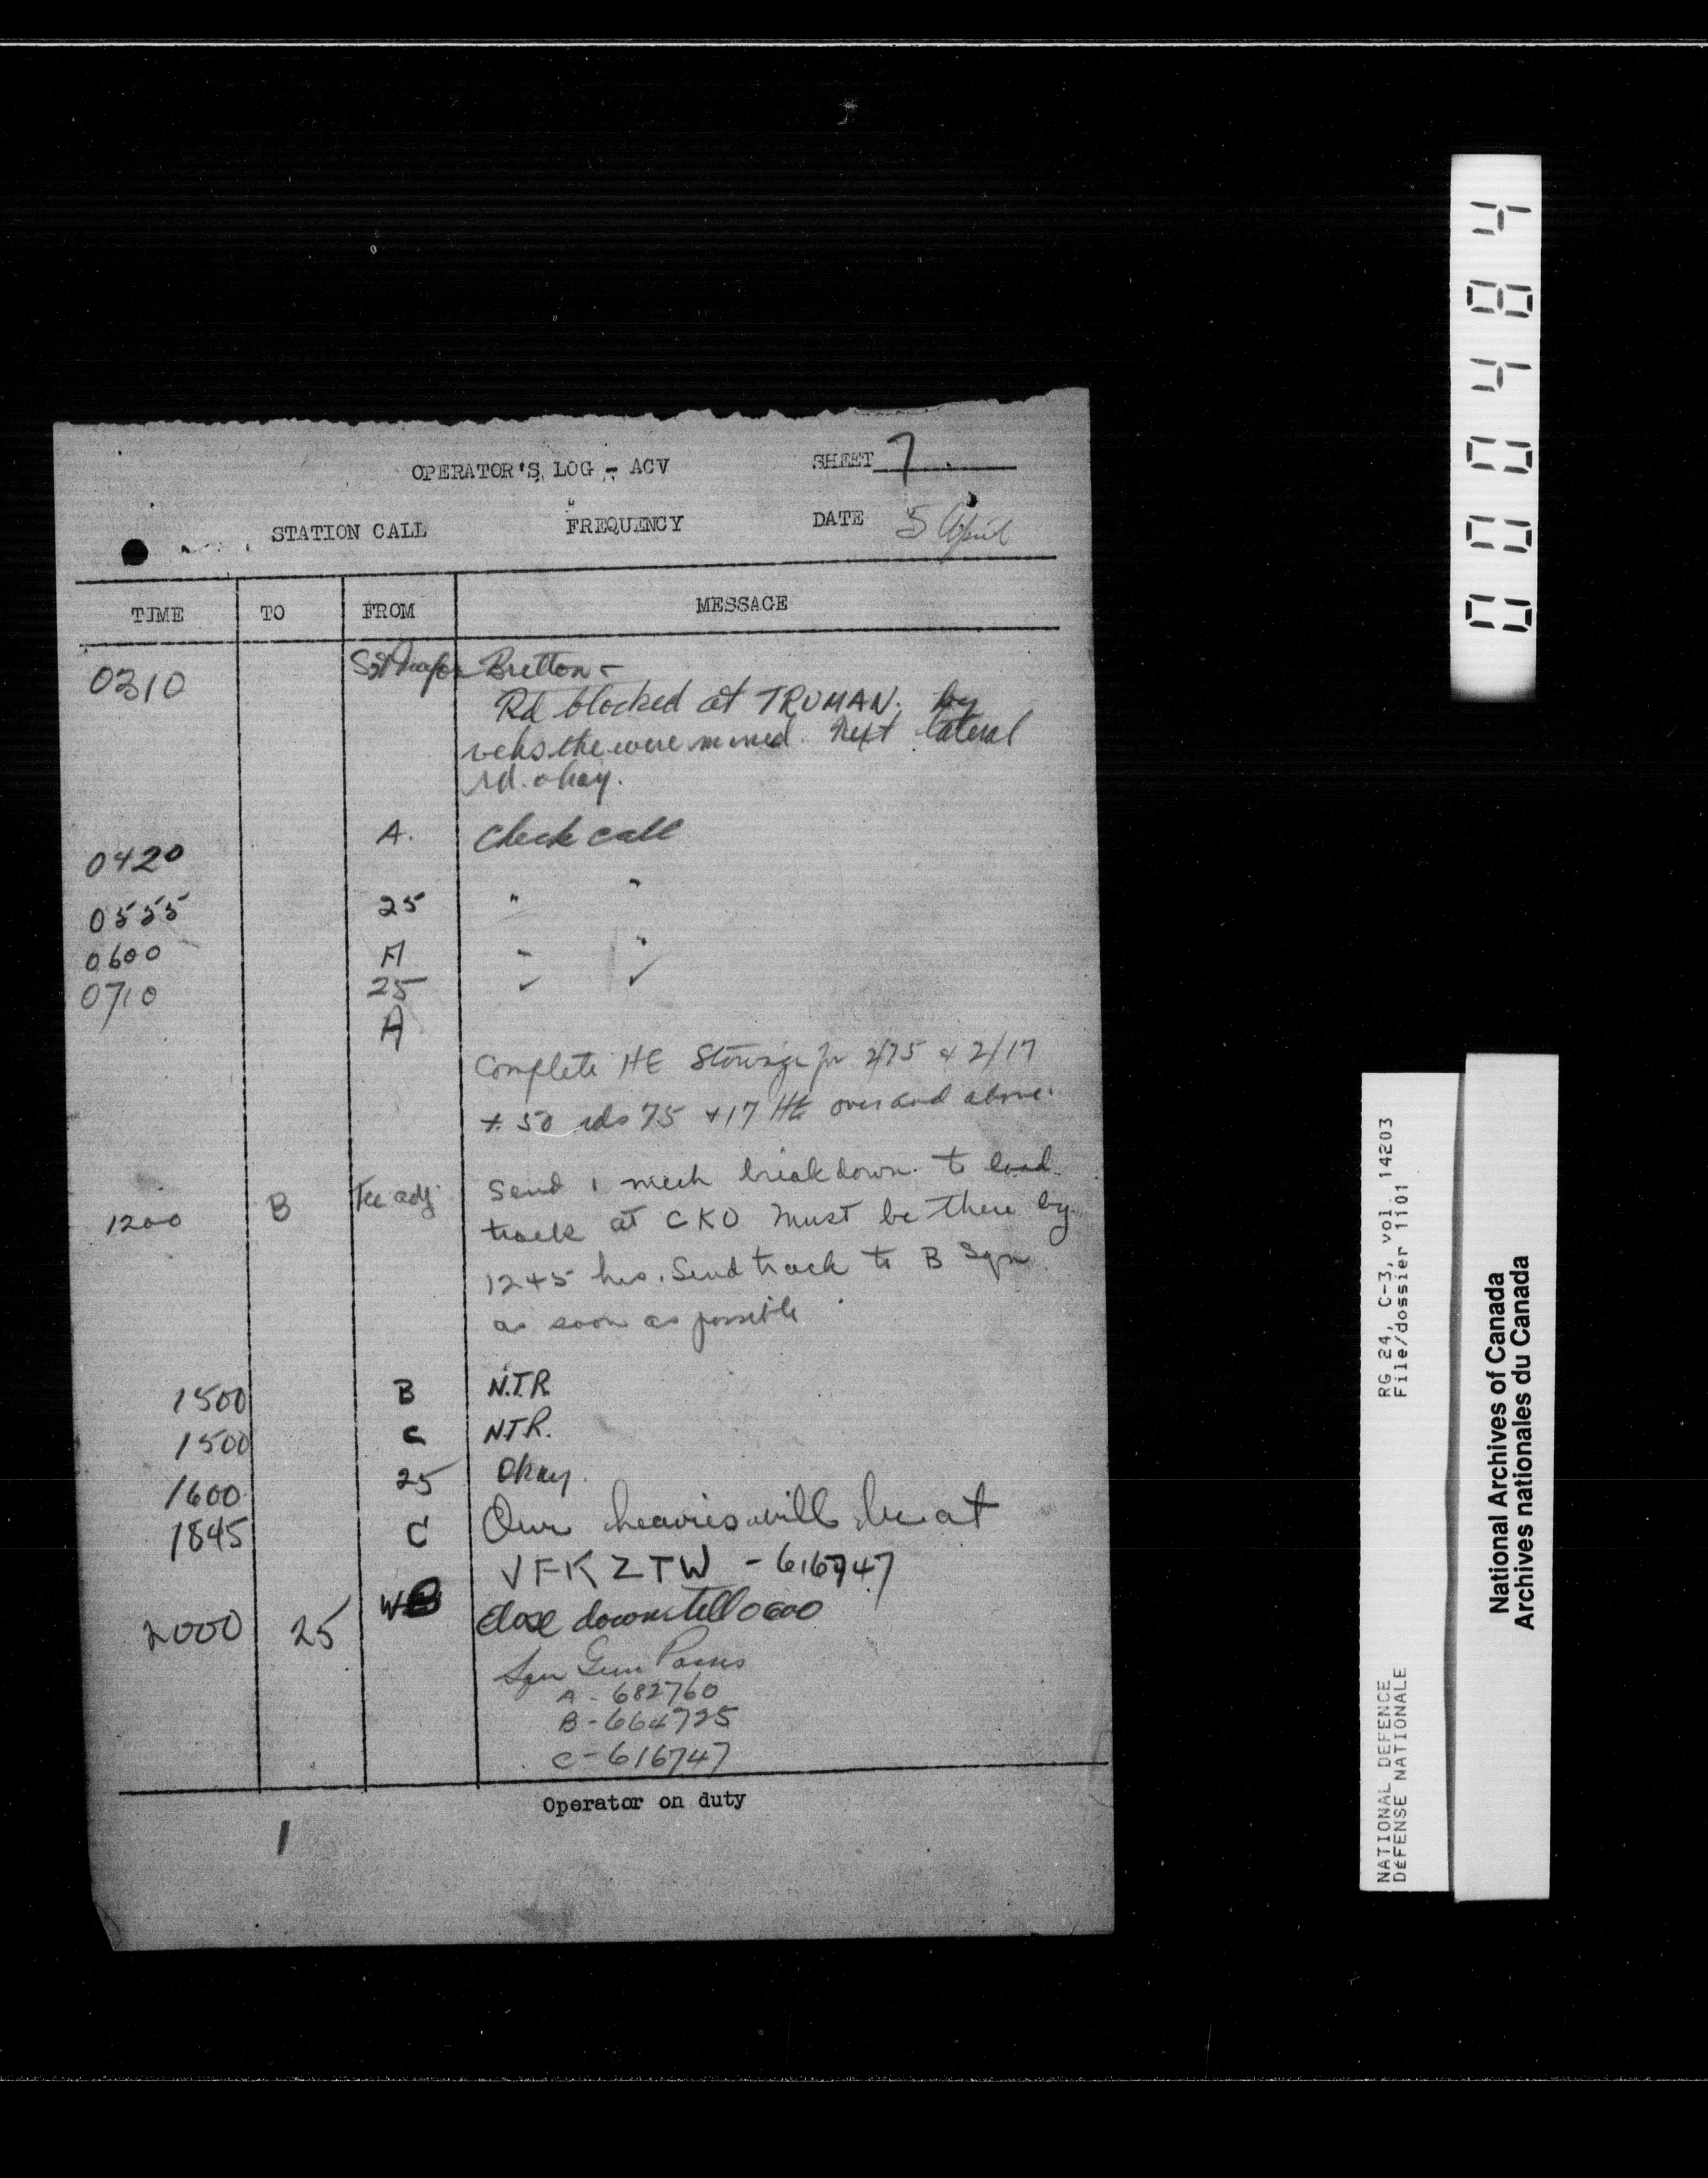 OPERATOR'S LOG - ACV SHEET 7.
STATION CALL FREQUENCY DATE 5 April
TIME TO FROM MESSAGE
0310 Bretton -
Rd blocked at TRUMAN. by
vehs the were mined. Next lateral
rd. okay.
0420 A. Check call
0555 25 " "
0600 A " "
0710 25 " "
A
Complete HE Stowage for 2/75 & 2/17
+ 50 rds 75 + 17 HE over and above.
1200 B Tec adj. Send 1 mech breakdown to
track at CKO Must be there by
1245 hrs. Send track to B Sqn
as soon as possible
1500 B N.T.R.
1500 C N.T.R.
1600 25 Okay.
1845 C Our heavies will be at
VFKZTW - 616747
2000 25 Close down till 0600
Sqn Gun
A - 682760
B - 664725
C - 616747
Operator on duty
1
000484
RG 24, C-3, vol. 14203
File/dossier 1101
NATIONAL DEFENCE
DÉFENSE NATIONALE
National Archives of Canada
Archives nationales du Canada